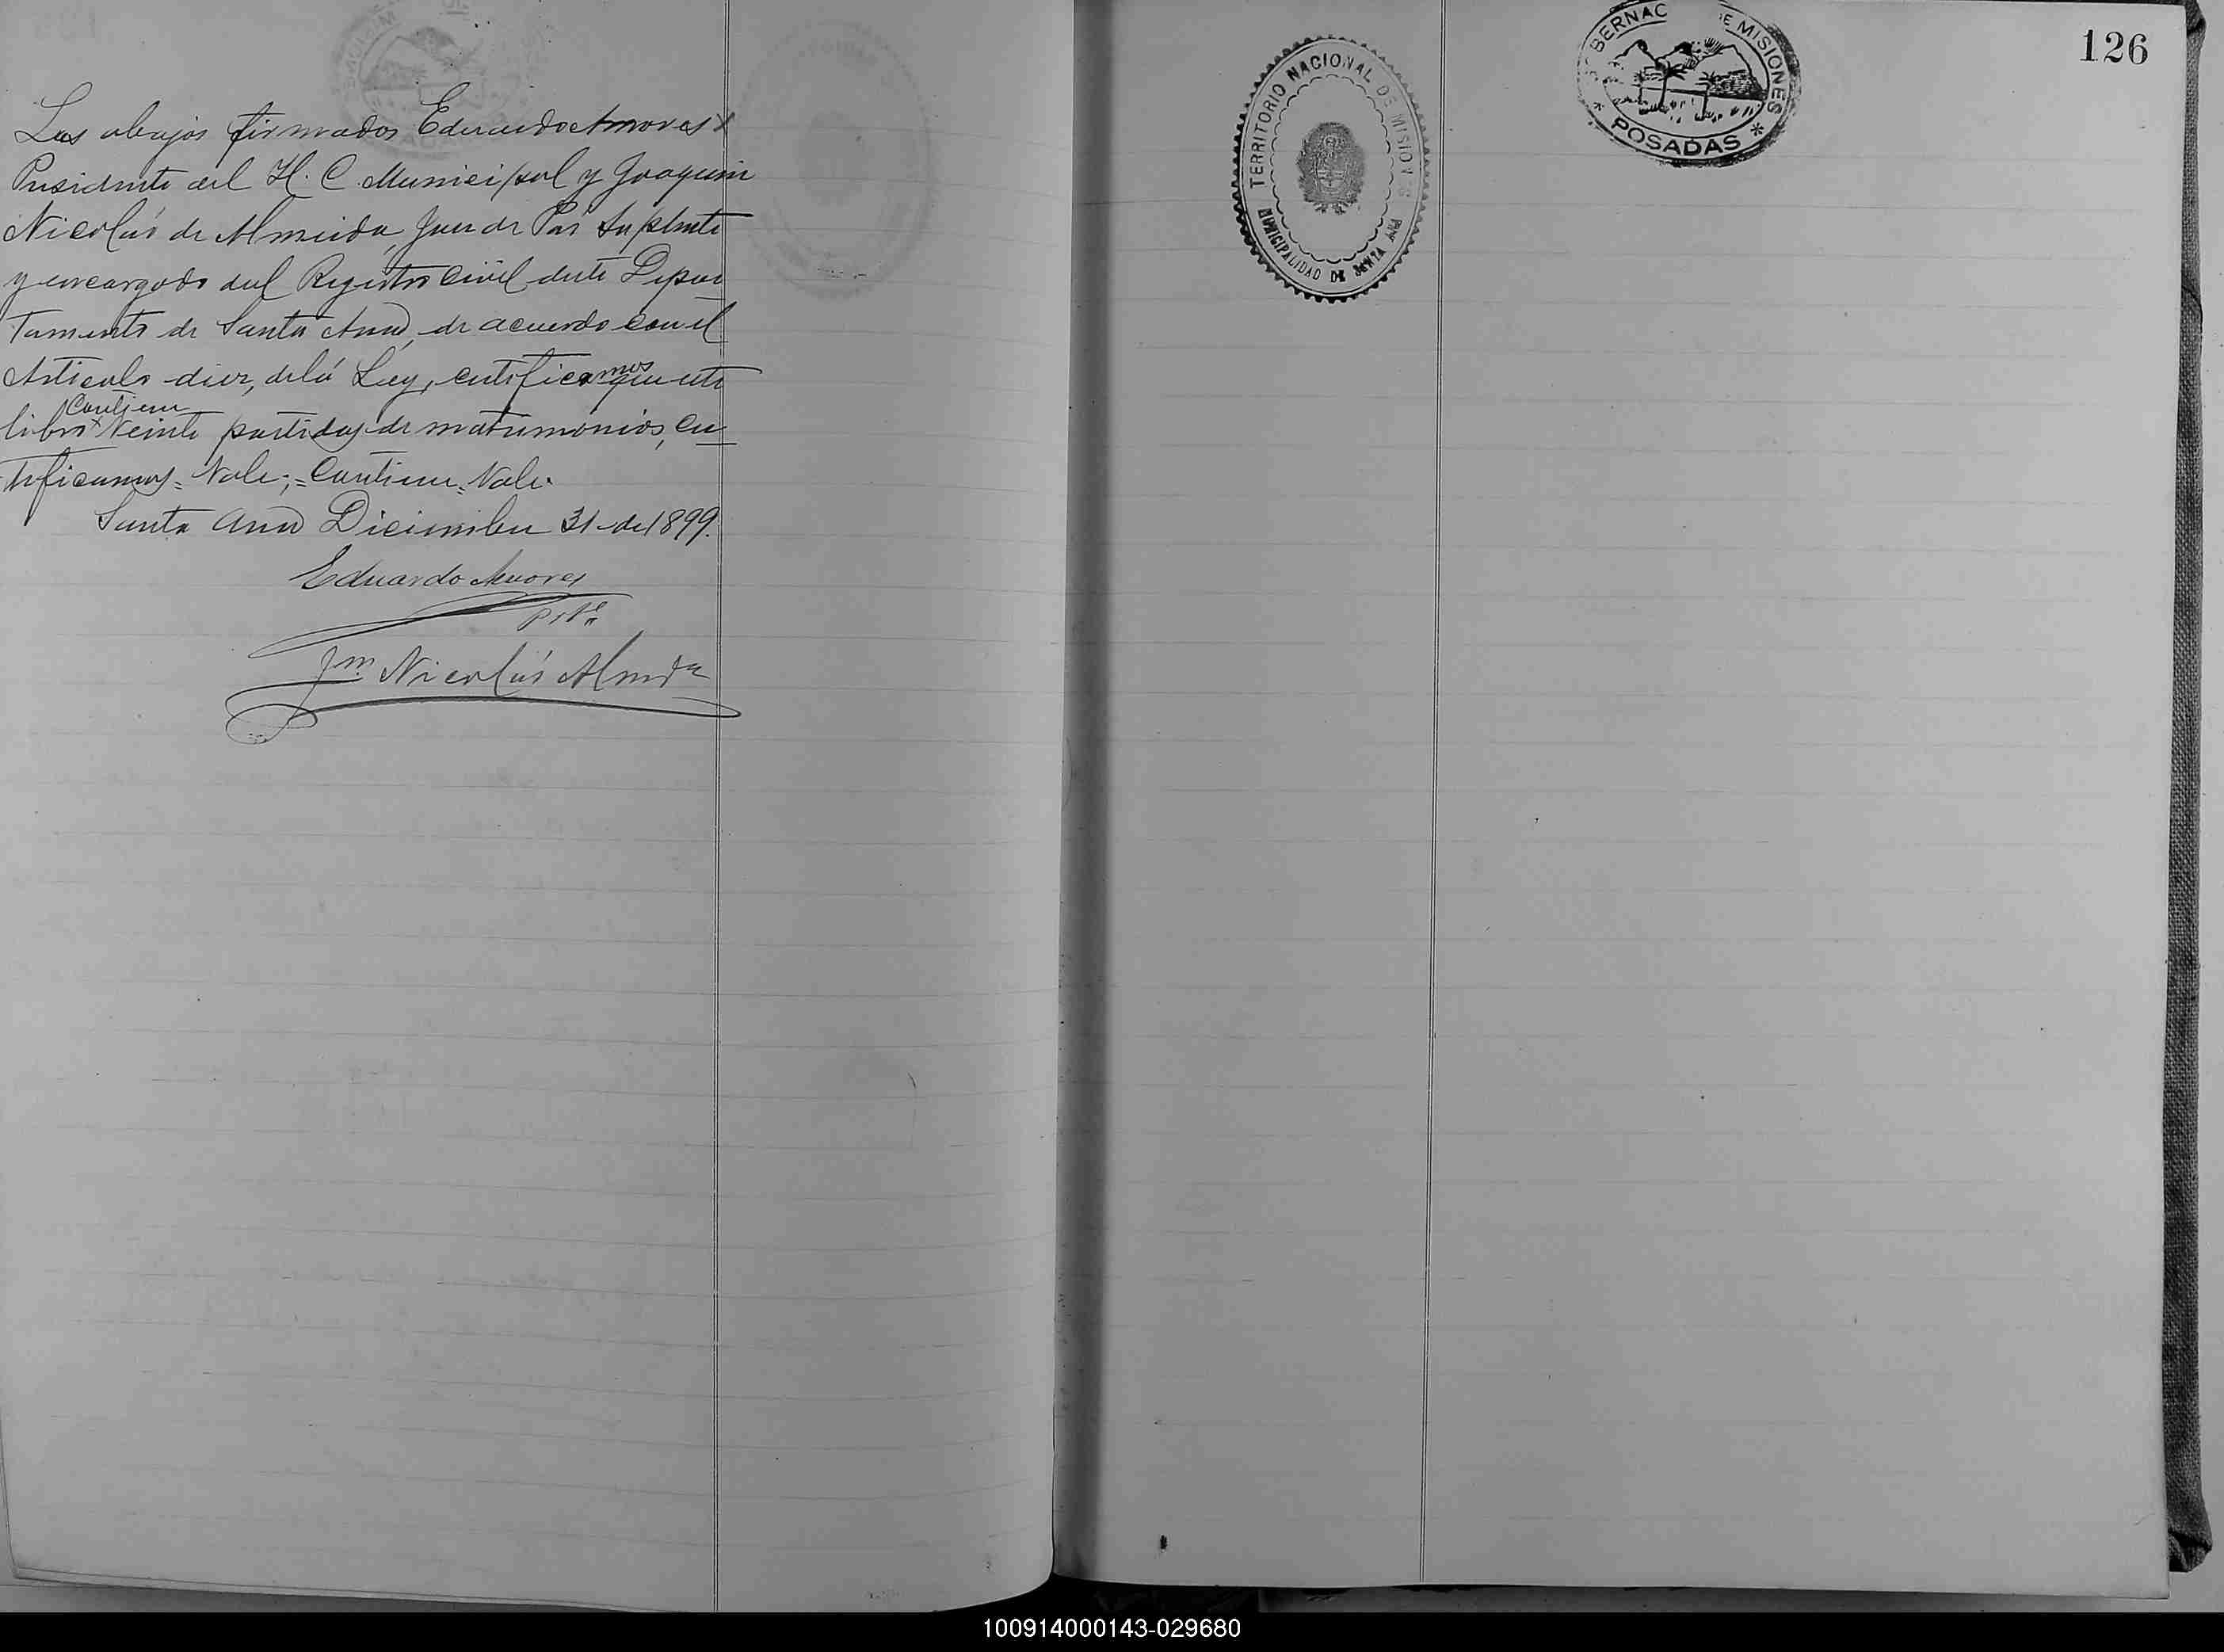 Los abajos firmados Eduardo Amores
Presidente del H. C. Municipal y Joaquin
Nicolás de Almeida Juez de Pas Suplente
y encargado del Registro Civil deste Depar
tamento de Santa Ana, de acuerdo con el
Articulo diez, de lá Ley, certificamos que este
Contiene
libro veinte partidas de matrimonios, Cer
tificamos = Vale ; = Contiene = Vale.
Santa Ana Diciembre 31 de 1899.
Eduardo Amores
Jm. Nicolás Almda
TERRITORIO NACIONAL DE MISIONES
MUNICIPALIDAD DE SANTA ANA
BERNAC E MISIONES
* POSADAS *
126
100914000143-029680